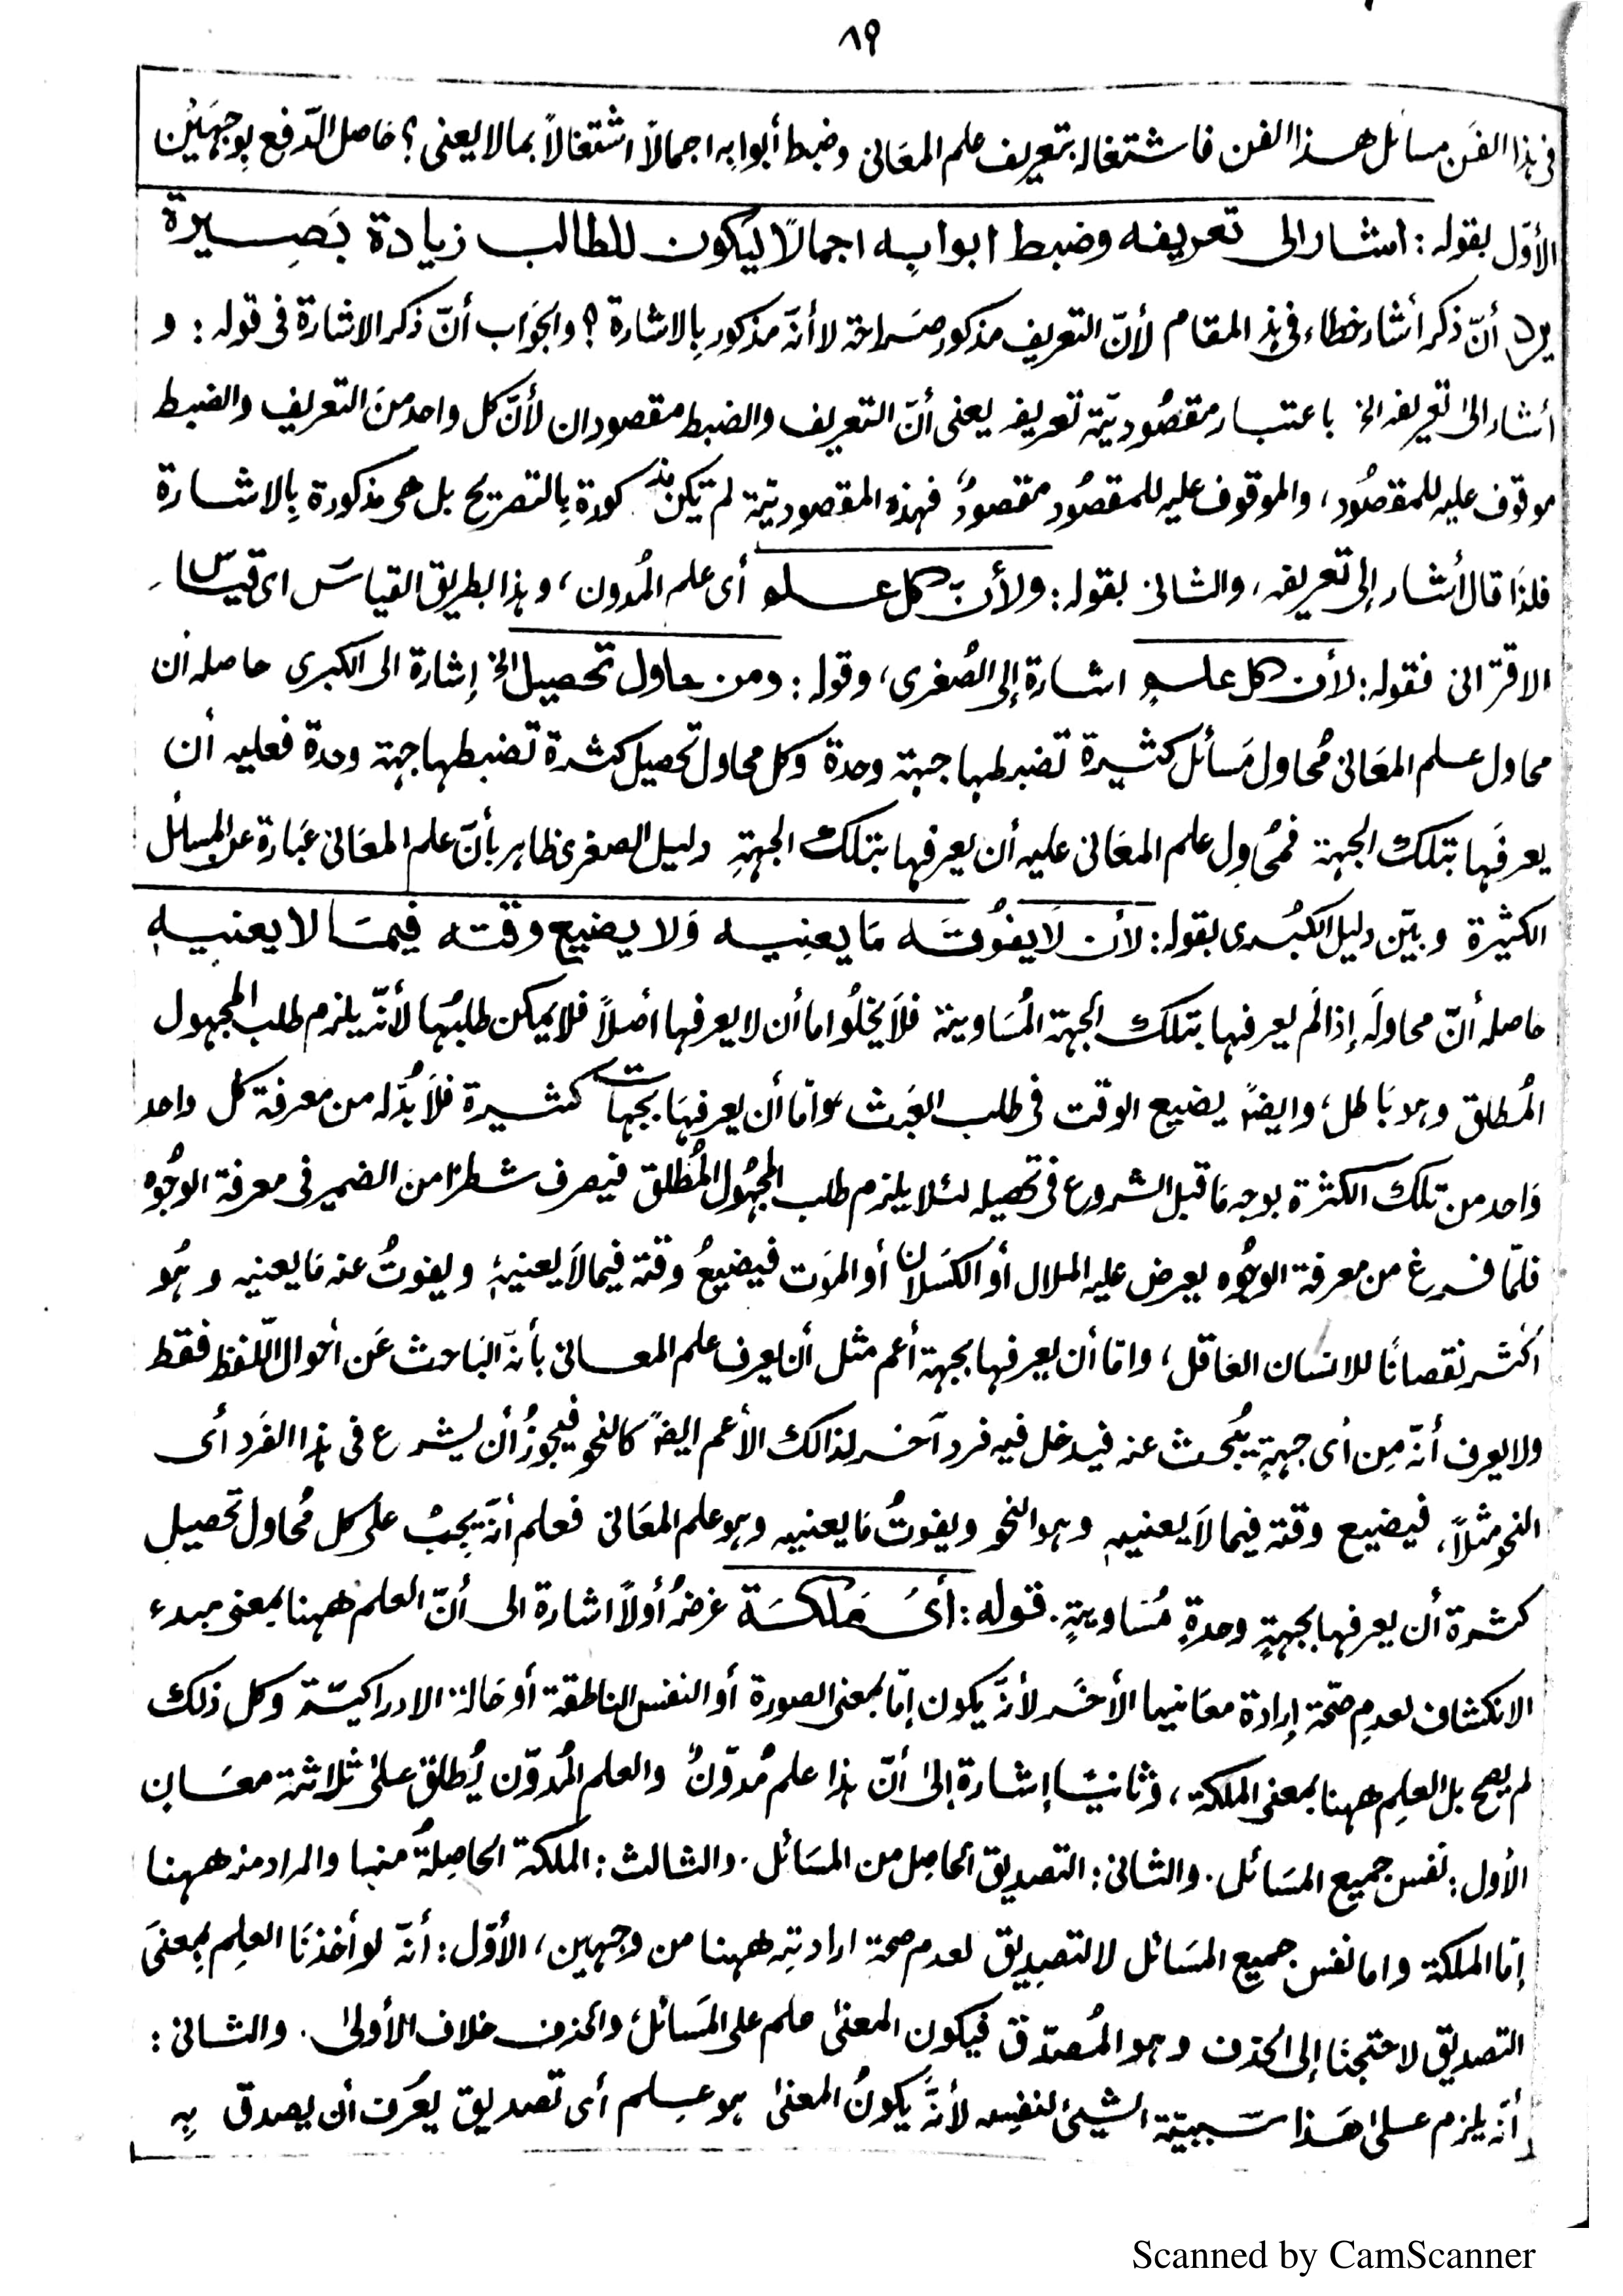 ٨٩
فى هذا الفَن مسائل هذا الفن فاشتغاله بتعريف علم المعَانى وضبط أبوابه اجمالاً اشتغالاً بمالا يعنى؟ حَاصل الدّفع بِوجهَيْن
الأوّل بقوله: اشار الى تعريفه وضبط ابوابه اجمالاً ليكون للطالب زيادة بَصِيرة
يرد أنّ ذكر أشار خطاء فى هذا المقام لأنّ التعريف مذكور صَراحة لا أنّه مذكور بِالاشارة؟ والجَوَاب أنّ ذكر الاشارة فى قوله: و
أشار الى تعريفه الخ باعتبار مقصُوديّة تعريفه يعنى أنّ التعريف والضبط مقصودان لأنّ كل واحد منَ التعريف والضبط
موقوف عليه للمقصُود، والموقوف عليه للمقصُود مقصودٌ، فهذه المقصوديّة لم تكن مذكورة بِالتصريح بل هى مذكورة بِالاشارة
فلذَا قال أشار إلى تعريفه، والثانى بقوله: ولأنّ كل علم أى علم المُدون، وهذا بطريق القياسَ اى قياس
الاقترانى فقوله: لأن كل علم اشارة إلى الصُغرى، وقوله: ومن حاول تحصيل الخ إشارة الى الكبرى حاصله أن
محاول علم المعَانى مُحاول مَسائل كثيرة تضبطها جهة وحدة وكل محاول تحصيل كثرة تضبطها جهة وحدة فعليه أن
يعرفَها بتلك الجهة فمُحاوِل علم المعَانى عليه أن يعرفها بتلك الجهةِ دليل الصغرى ظاهر بأنّ علم المعَانى عَبارة عن المسائل
الكثيرة وبيّن دليل الكبُرى بقوله: لأن لَا يفُوتَه مَا يعنِيه وَلا يضيع وقته فيمَا لا يعنيه
حاصله أنّ محاولَه إذا لَم يعرفها بتلك الجهة المُسَاوية فلَا يخلُوا اما أن لا يعرفها أصلاً فلا يمكن طلبُها لأنّه يلزم طلب المجهول
المُطلق وهو بَاطل، وايضًا يضيع الوقت فى طلب العَبث، وَامّا أن يعرفهَا بجهات كثيرة فلَا بُدّ له من معرفة كل واحد
وَاحد من تلك الكثرة بوجه مَا قبل الشروع فى تحصيله لئلا يلزم طلب المجهُول المُطلق فيصرف شطرًا من الضمير فى معرفة الوجُوه
فلمّا فرغ من معرفة الوجُوه يعرض عليه الملال أو الكسَلان أو الموَت فيضيعُ وقته فيما لَا يعنيهِ ويفوتُ عنه مَا يعنيه وهُو
أكثر نقصانًا للانسان العَاقل، وامّا أن يعرفها بجهة أعم مثل أن يعرف علم المعانى بأنّه البَاحث عَن أحوال اللّفظ فقط
ولا يعرف أنّه مِن أى جهةٍ يُبحث عنه فيدخل فيه فرد آخر لذالك الأعم ايضًا كالنحو فيجوزُ أن يشرع فى هذا الفَرد أى
النحو مثلاً، فيضيع وقته فيما لَا يعنيه وهو النحو ويفوتُ مَا يعنيه وهو علم المعَانى فعلم أنّه يجبُ على كل مُحاول تحصيل
كثرة أن يعرفها بجهةٍ وحدةٍ مُسَاويةٍ. قوله: أىْ مَلكَة غرضُه أولاً اشارة الى أنّ العلم ههنا بمعنى مبدء
الانكشاف لعدمِ صحّة إرادة معَانيها الأخَر لأنّه يكون إمّا بمعنى الصورة أو النفس الناطقة أو حَالة الادراكيّة وكل ذلك
لم يصح بل العلِم ههنا بمعنى الملكة، وثانيًا إشارة إلى أنّ هذا علم مُدوّنٌ والعلم المُدوّن يُطلق على ثلاثة معَان
الأول: نفس جميع المسَائل. والثانى: التصديق الحَاصِل من المسَائل. والثالث: الملكة الحَاصِلةُ منها والمراد منه ههنا
إمّا الملكة واما نفس جميع المسَائل لا لتصدِيق لعدم صحة ارادتِه ههنا من وجهين، الأوّل: أنّه لو أخذنَا العلِم بمعنَى
التصديق لاحتجنَا إلى الحَذف وهو المُصَدّق فيكون المعنى علم على المَسَائل، والحذف خلاف الأولى. والثانى:
أنّه يلزم على هَذا سَببيّة الشيئ لنفسِه لأنَّه يكونُ المعنى هو علم أى تصديق يعرَف أن يصدق بِه
Scanned by CamScanner